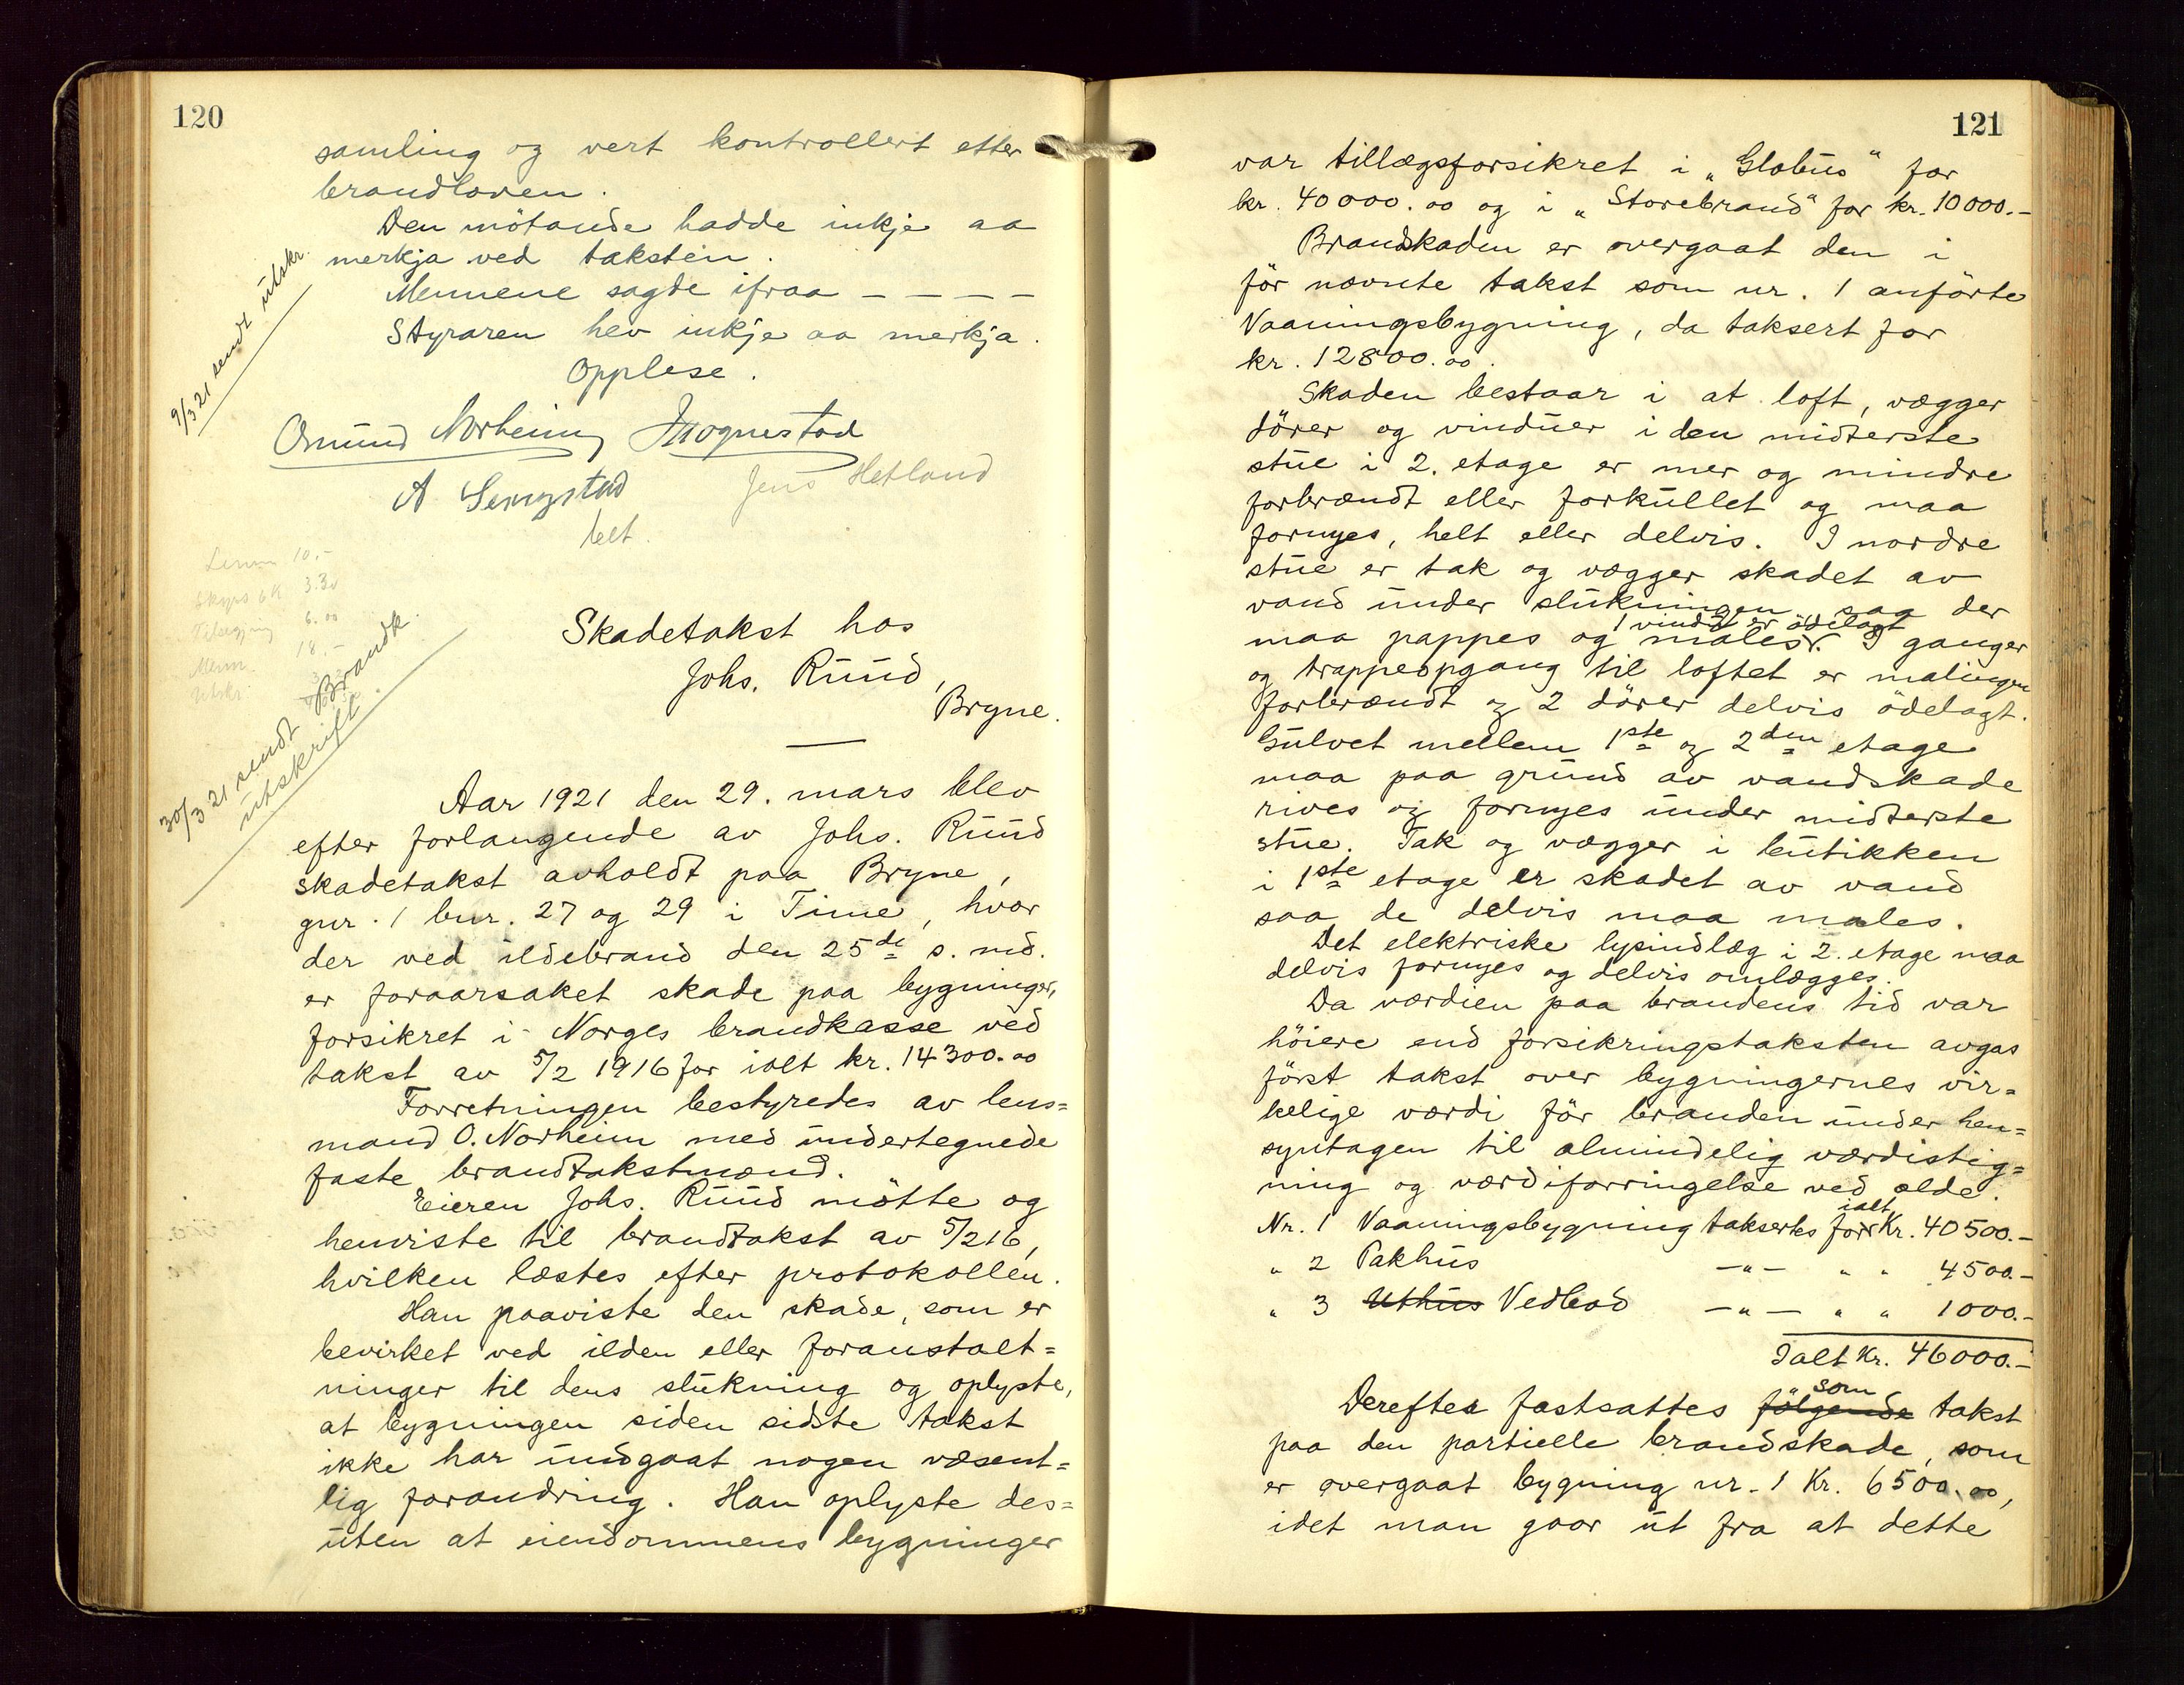 120
samling og vert kontrollert etter
brandloven.
Den mötande hadde inkje aa
merkja ved taksten.
Mennene sagde ifraa – – – –
Styraren hev inkje aa merkja.
Opplese.
9/3 21 sendt utskr.
Osmund Norheim
A
Jens Hetland
10.-
3.30
6.00
18.-
30/3 21 sendt Brandk.
utskrift.
Skadetakst hos
Johs. Ruud,
Bryne.
Aar 1921 den 29. mars blev
efter forlangende av Johs. Ruud
skadetakst avholdt paa Bryne,
gnr. 1 bnr. 27 og 29 i Time, hvor
der ved ildebrand den 25de s. md.
er foraarsaket skade paa bygninger,
forsikret i Norges brandkasse ved
takst av 5/2 1916 for ialt kr. 14300.00
Forretningen bestyredes av lens=
mand O. Norheim med undertegnede
faste brandtakstmænd.
Eieren Johs. Ruud mötte og
henviste til brandtakst av 5/2 16,
hvilken læstes efter protokollen.
Han paaviste den skade, som er
bevirket ved ilden eller foranstalt=
ninger til dens slukning og oplyste,
at bygningen siden sidste takst
ikke har undgaat nogen væsent=
lig forandring. Han oplyste des=
uten at eiendommens bygninger
121
var tillægsforsikret i „Globus“ for
kr. 40000.00 og i „Storebrand“ for kr. 10000.-
Brandskaden er overgaat den i
för nævnte takst som nr. 1 anförte
Vaaningsbygning, da taksert for
kr. 12800.00.
Skaden bestaar i at loft, vægger
dörer og vinduer i den midterste
stue i 2. etage er mer og mindre
forbrændt eller forkullet og maa
fornyes, helt eller delvis. I nordre
stue er tak og vægger skadet av
vand under slukningen saa der
1 vindu er ödelagt
maa pappes og males. I ganger
og trappeopgang til loftet er malingen
forbrændt og 2 dörer delvis ödelagt.
Gulvet mellem 1ste og 2den etage
maa paa grund av vandskade
rives og fornyes under midterste
stue. Tak og vægger i butikken
i 1ste etage er skadet av vand
saa de delvis maa males.
Det elektriske lysindlæg i 2. etage maa
delvis fornyes og delvis omlægges.
Da værdien paa brandens tid var
höiere end forsikringstaksten avgas
först takst over bygningernes vir=
kelige værdi för branden under hen=
syntagen til almindelig værdistig=
ning og værdiforringelse ved ælde.
ialt
Nr. 1 Vaaningsbygning taksertes for Kr. 40500.-
„ 2 Pakhus –„– „ „ 4500.-
„ 3 Uthus Vedbod –„– „ „ 1000.-
Ialt Kr. 46000.-
som
Derefter fastsattes fölgende takst
paa den partielle brandskade, som
er overgaat bygning nr. 1 Kr. 6500.00,
idet man gaar ut fra at dette